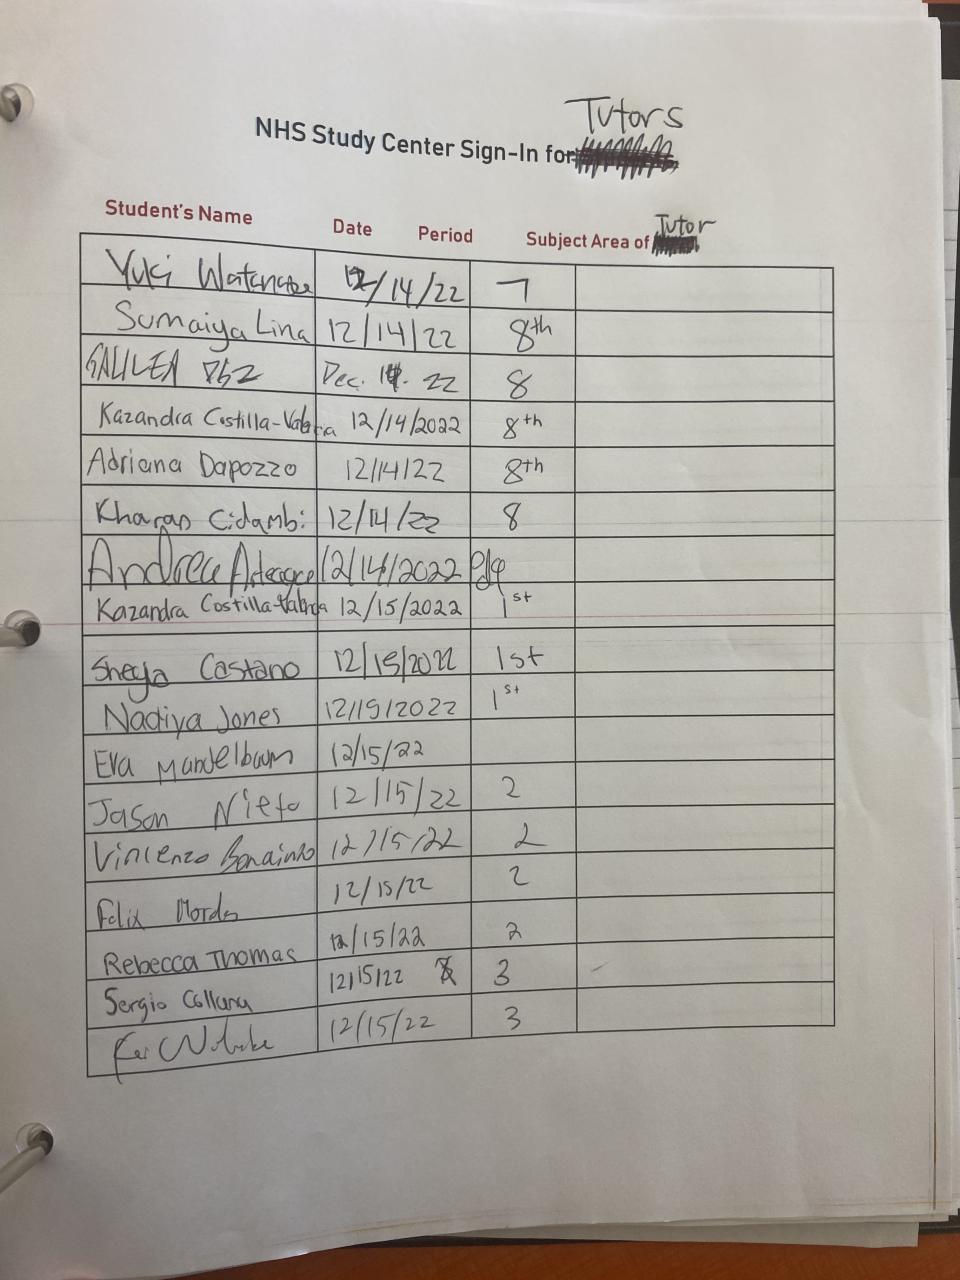 Tutors
NHS Study Center Sign-In for
Student's Name Date Period Subject Area of Tutor
Yuki Watanabe 12/14/22 7
Sumaiya Lina 12/14/22 8th
GALILEA 12/14/22 8
Kazandra Costilla-Valencia 12/14/2022 8th
Adriana Dapozzo 12/14/22 8th
Kharan Cidambi 12/14/22 8
Andrea Arteaga 12/14/2022
Kazandra Costilla- 12/15/2022 1st
Sheyla Castano 12/15/2022 1st
Nadiya Jones 12/15/2022 1st
Eva Mandelbaum 12/15/22
Jason Nieto 12/15/22 2
Vincenzo 12/15/22 2
Felix 12/15/22 2
Rebecca Thomas 12/15/22 2
Sergio 12/15/22 3
12/15/22 3